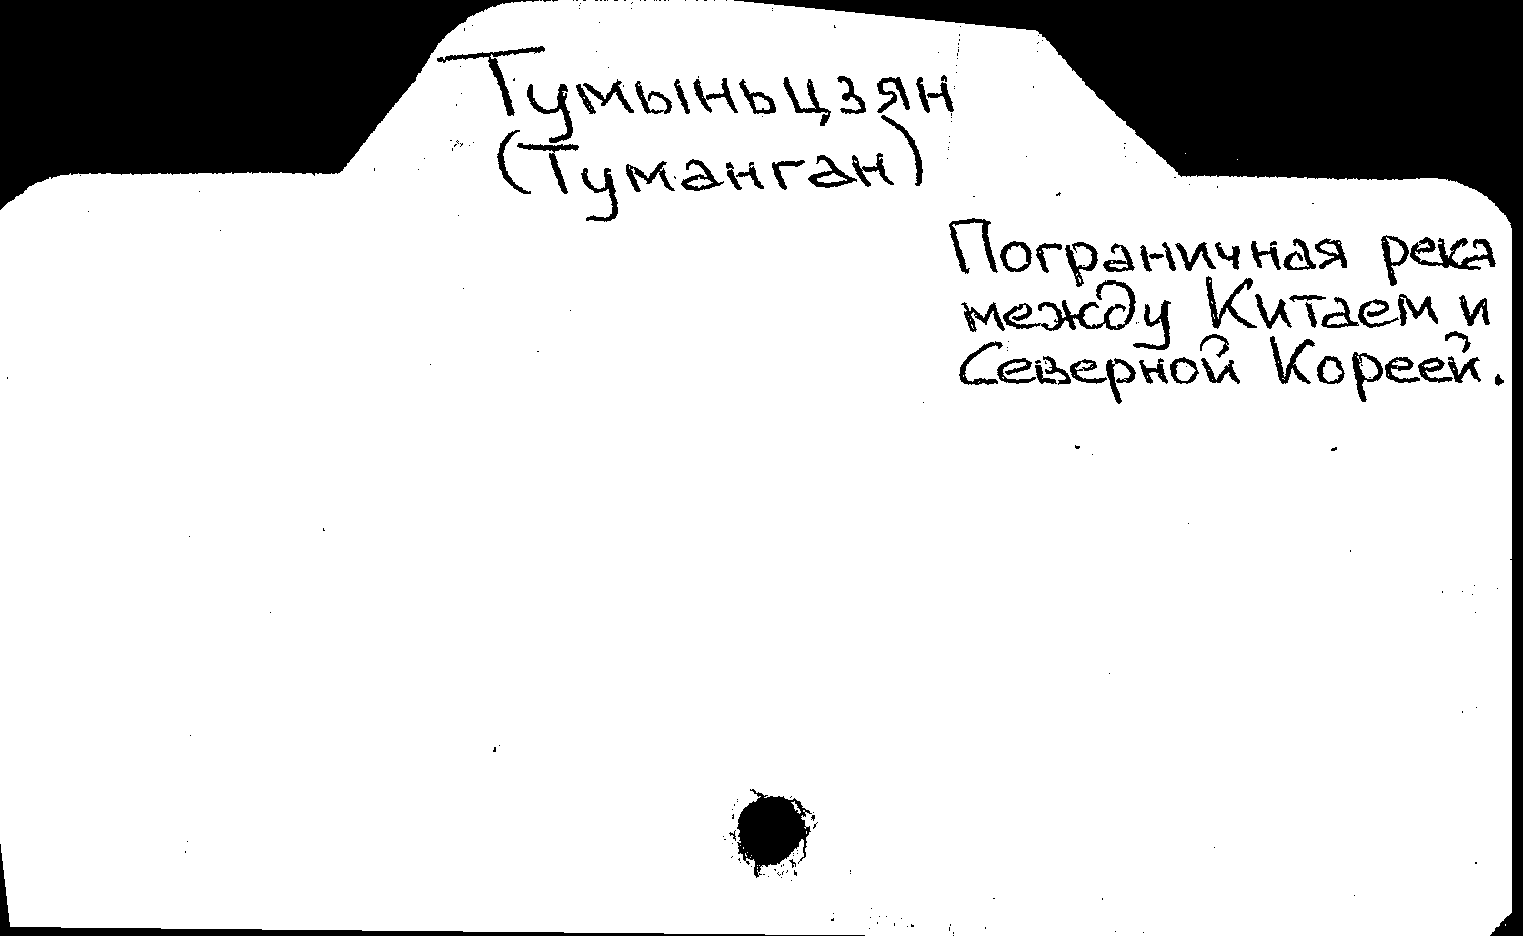 Тумыньцзян
(Туманган)
Пограничная река
между Китаем и
Северной Кореей.